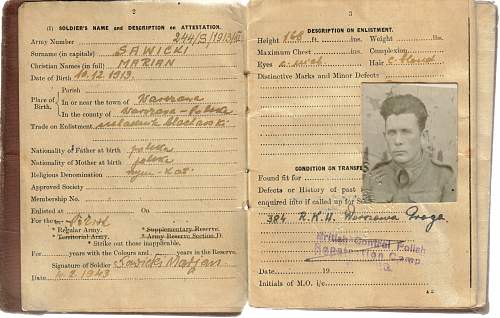 2
(1) SOLDIER'S NAME and DESCRIPTION on ATTESTATION.
Army Number
Surname (in capitals) SAWICKI
Christian Names (in full) MARIAN
Date of Birth 10.12 1913.
Parish
Place of Birth. In or near the town of Warszawa
In the county of Warszawa - Polska
Trade on Enlistment
Nationality of Father at birth polska
Nationality of Mother at birth polska
Religious Denomination rzym-kat.
Approved Society
Membership No.
Enlisted at On
For the:—
* Regular Army. * Supplementary Reserve.
* Territorial Army. * Army Reserve Section D.
* Strike out those inapplicable.
For years with the Colours and years in the Reserve.
Signature of Soldier Sawicki Marjan
Date 2 1943
3
DESCRIPTION ON ENLISTMENT.
Height 168 ft. ins. Weight lbs.
Maximum Chest ins. Complexion
Eyes Hair c. blond
Distinctive Marks and Minor Defects
CONDITION ON TRANSFE
Found fit for
Defects or History of past
enquired into if called up for S
384 R.K.U. Warszawa Praga
British Control Polish
Repatriation Camp
Date 19
Initials of M.O. i/c